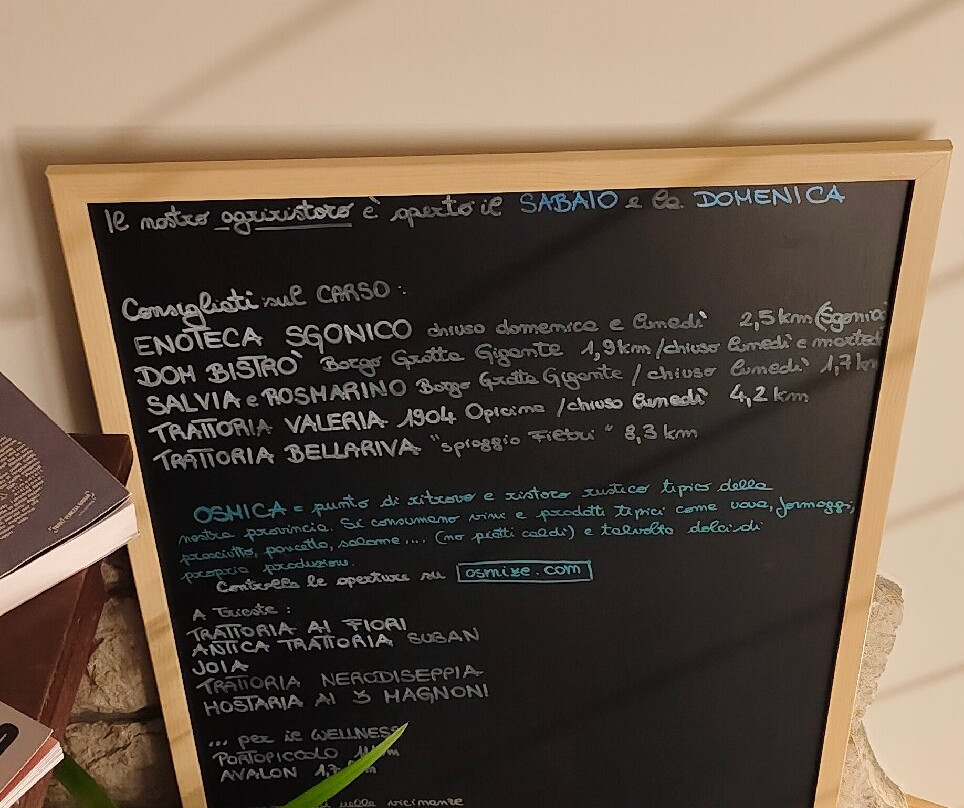 Il nostro agriristoro è aperto il SABATO e la DOMENICA
Consigliati sul CARSO:
ENOTECA SGONICO chiuso domenica e lunedì 2,5 km (Sgonico
DOM BISTRÒ Borgo Grotta Gigante 1,9 km / chiuso lunedì e martedì
SALVIA e ROSMARINO Borgo Grotta Gigante / chiuso lunedì 1,7 km
TRATTORIA VALERIA 1904 Opicina / chiuso lunedì 4,2 km
TRATTORIA BELLARIVA "spiaggia Filtri" 8,3 km
OSMICA = punto di ritrovo e ristoro rustico tipico della
nostra provincia. Si consumano vini e prodotti tipici come uova, formaggi,
prosciutto, pancetta, salame... (no piatti caldi) e talvolta dolci di
propria produzione.
Controlla le aperture su osmize.com
A Trieste:
TRATTORIA AI FIORI
ANTICA TRATTORIA SUBAN
JOIA
TRATTORIA NERODISEPPIA
HOSTARIA AI 3 MAGNONI
... per il WELLNESS
PORTOPICCOLO
AVALON
nelle vicinanze